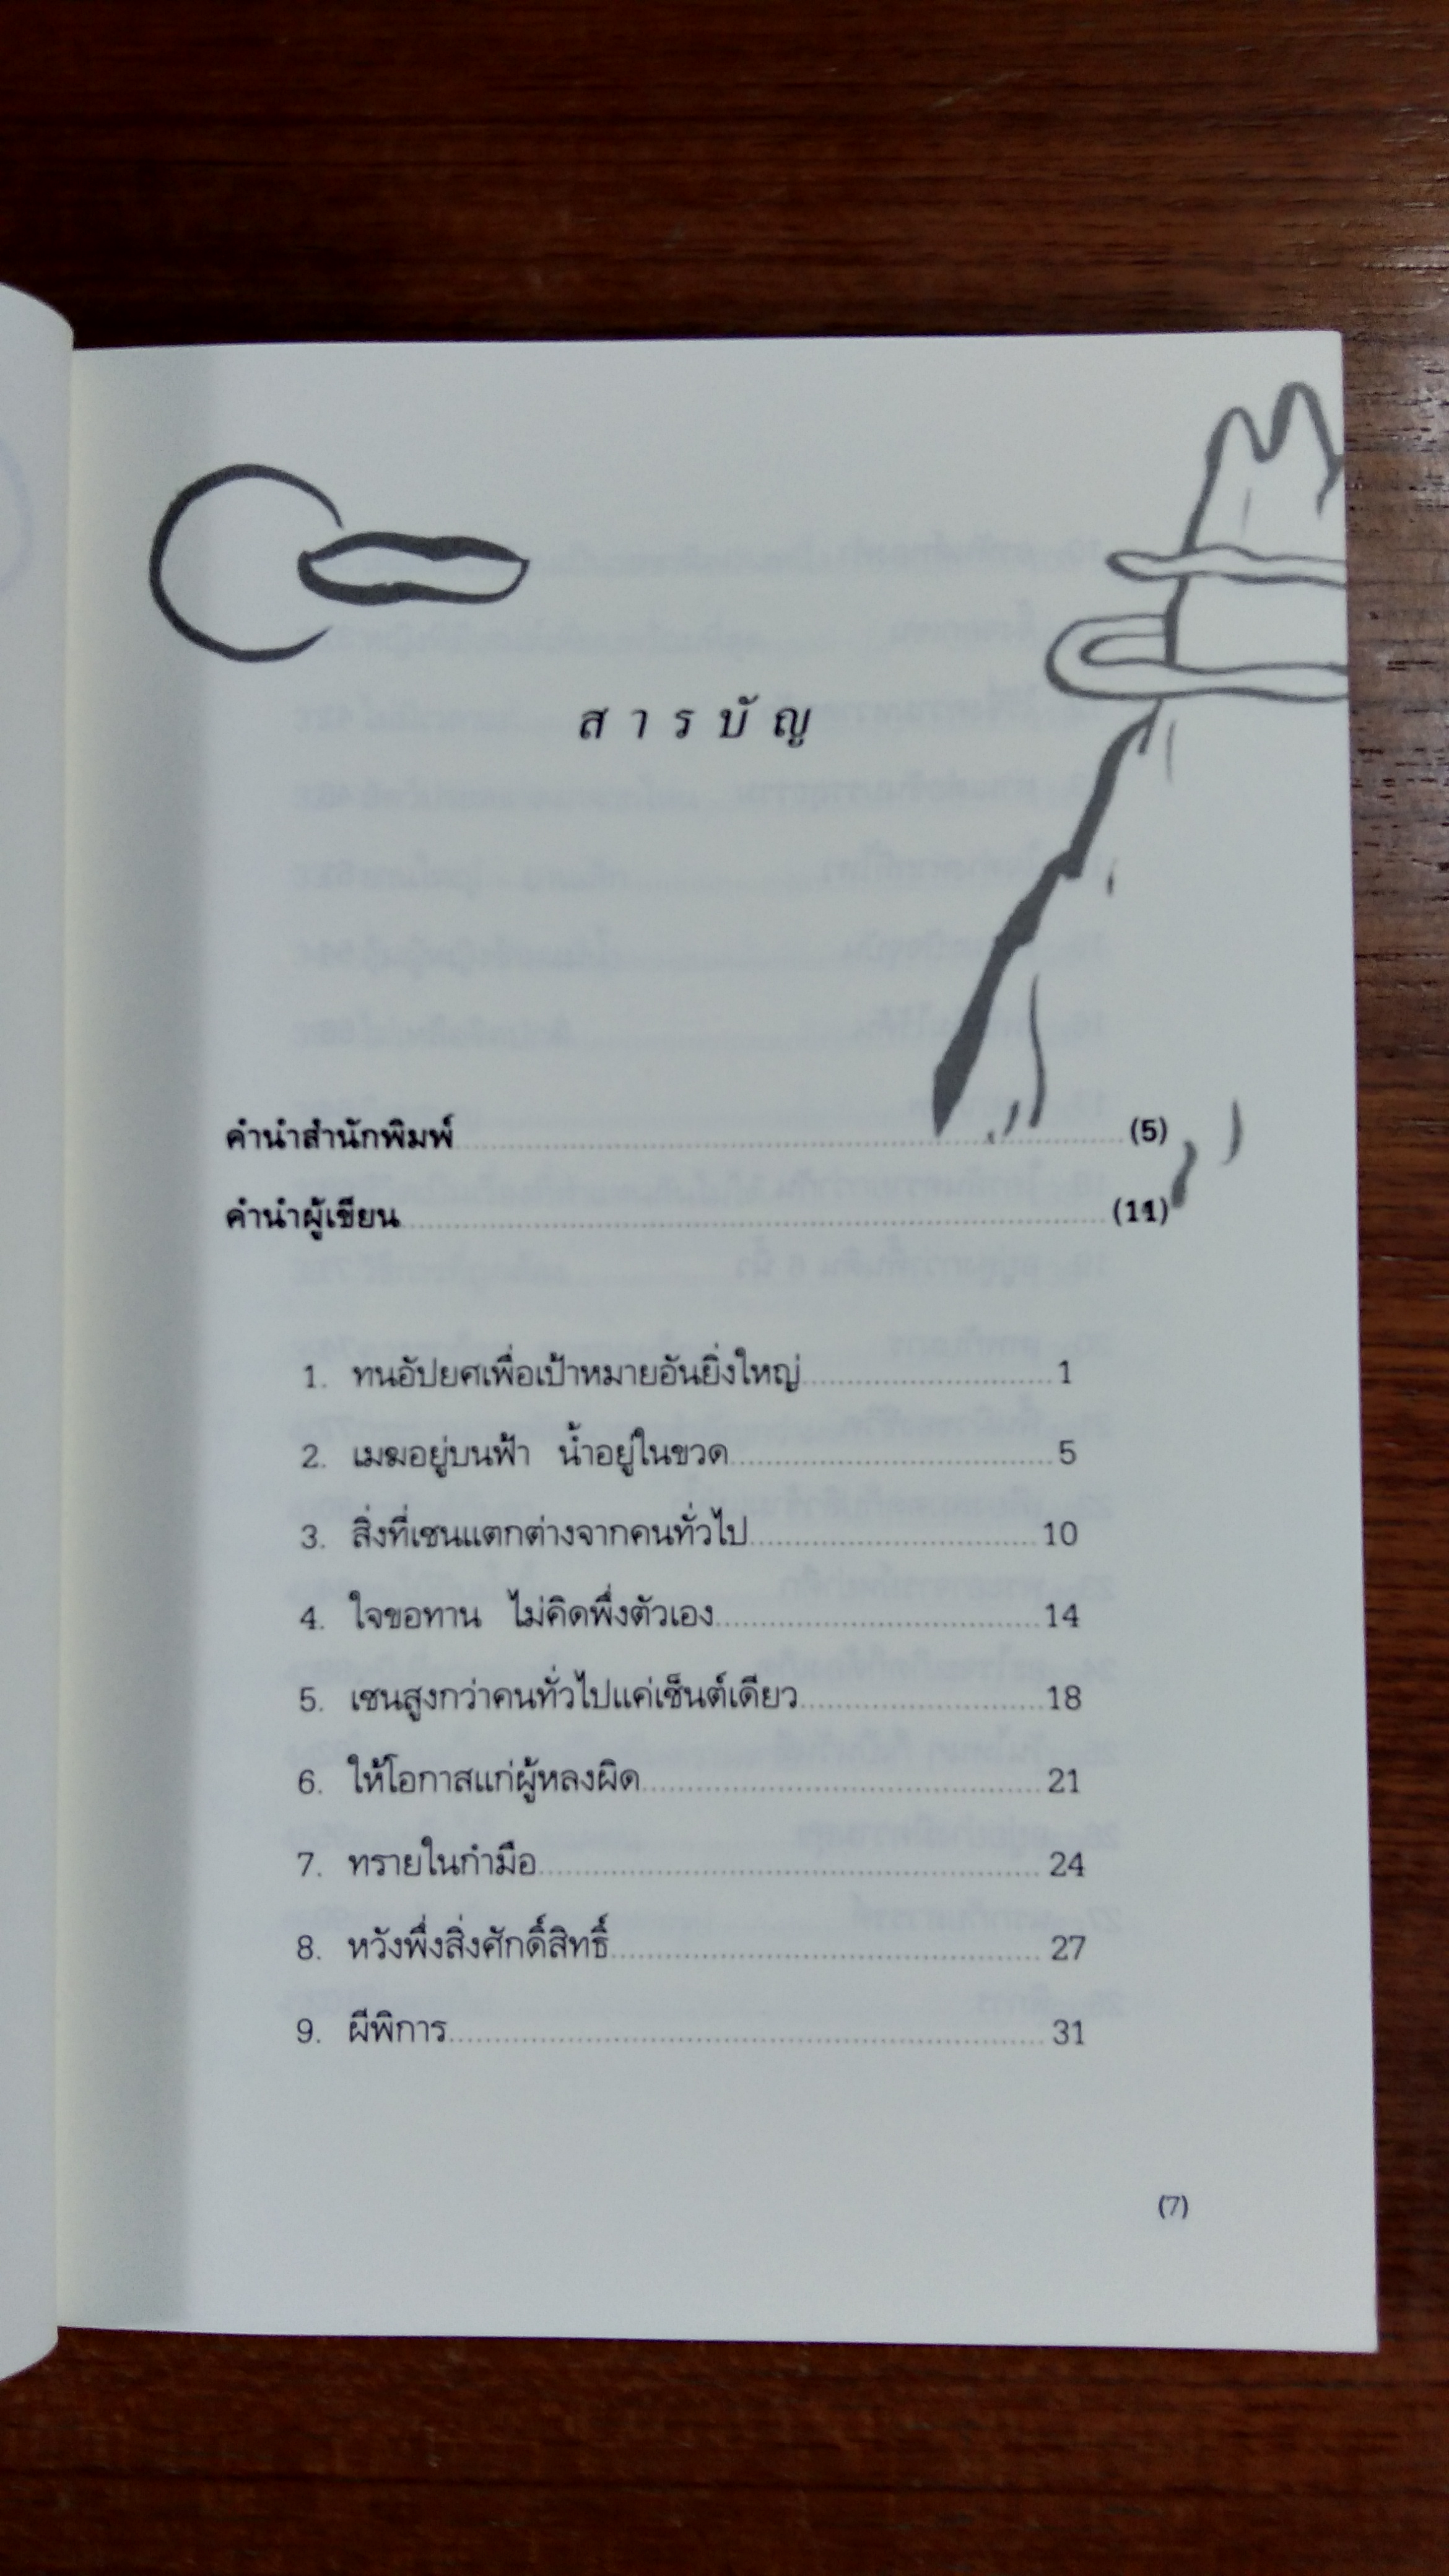 สารบัญ
คำนำสำนักพิมพ์ (5)
คำนำผู้เขียน (11)
1. ทนอัปยศเพื่อเป้าหมายอันยิ่งใหญ่ 1
2. เมฆอยู่บนฟ้า น้ำอยู่ในขวด 5
3. สิ่งที่เซนแตกต่างจากคนทั่วไป 10
4. ใจขอทาน ไม่คิดพึ่งตัวเอง 14
5. เซนสูงกว่าคนทั่วไปแค่เซ็นต์เดียว 18
6. ให้โอกาสแก่ผู้หลงผิด 21
7. ทรายในกำมือ 24
8. หวังพึ่งสิ่งศักดิ์สิทธิ์ 27
9. ผีพิการ 31
(7)